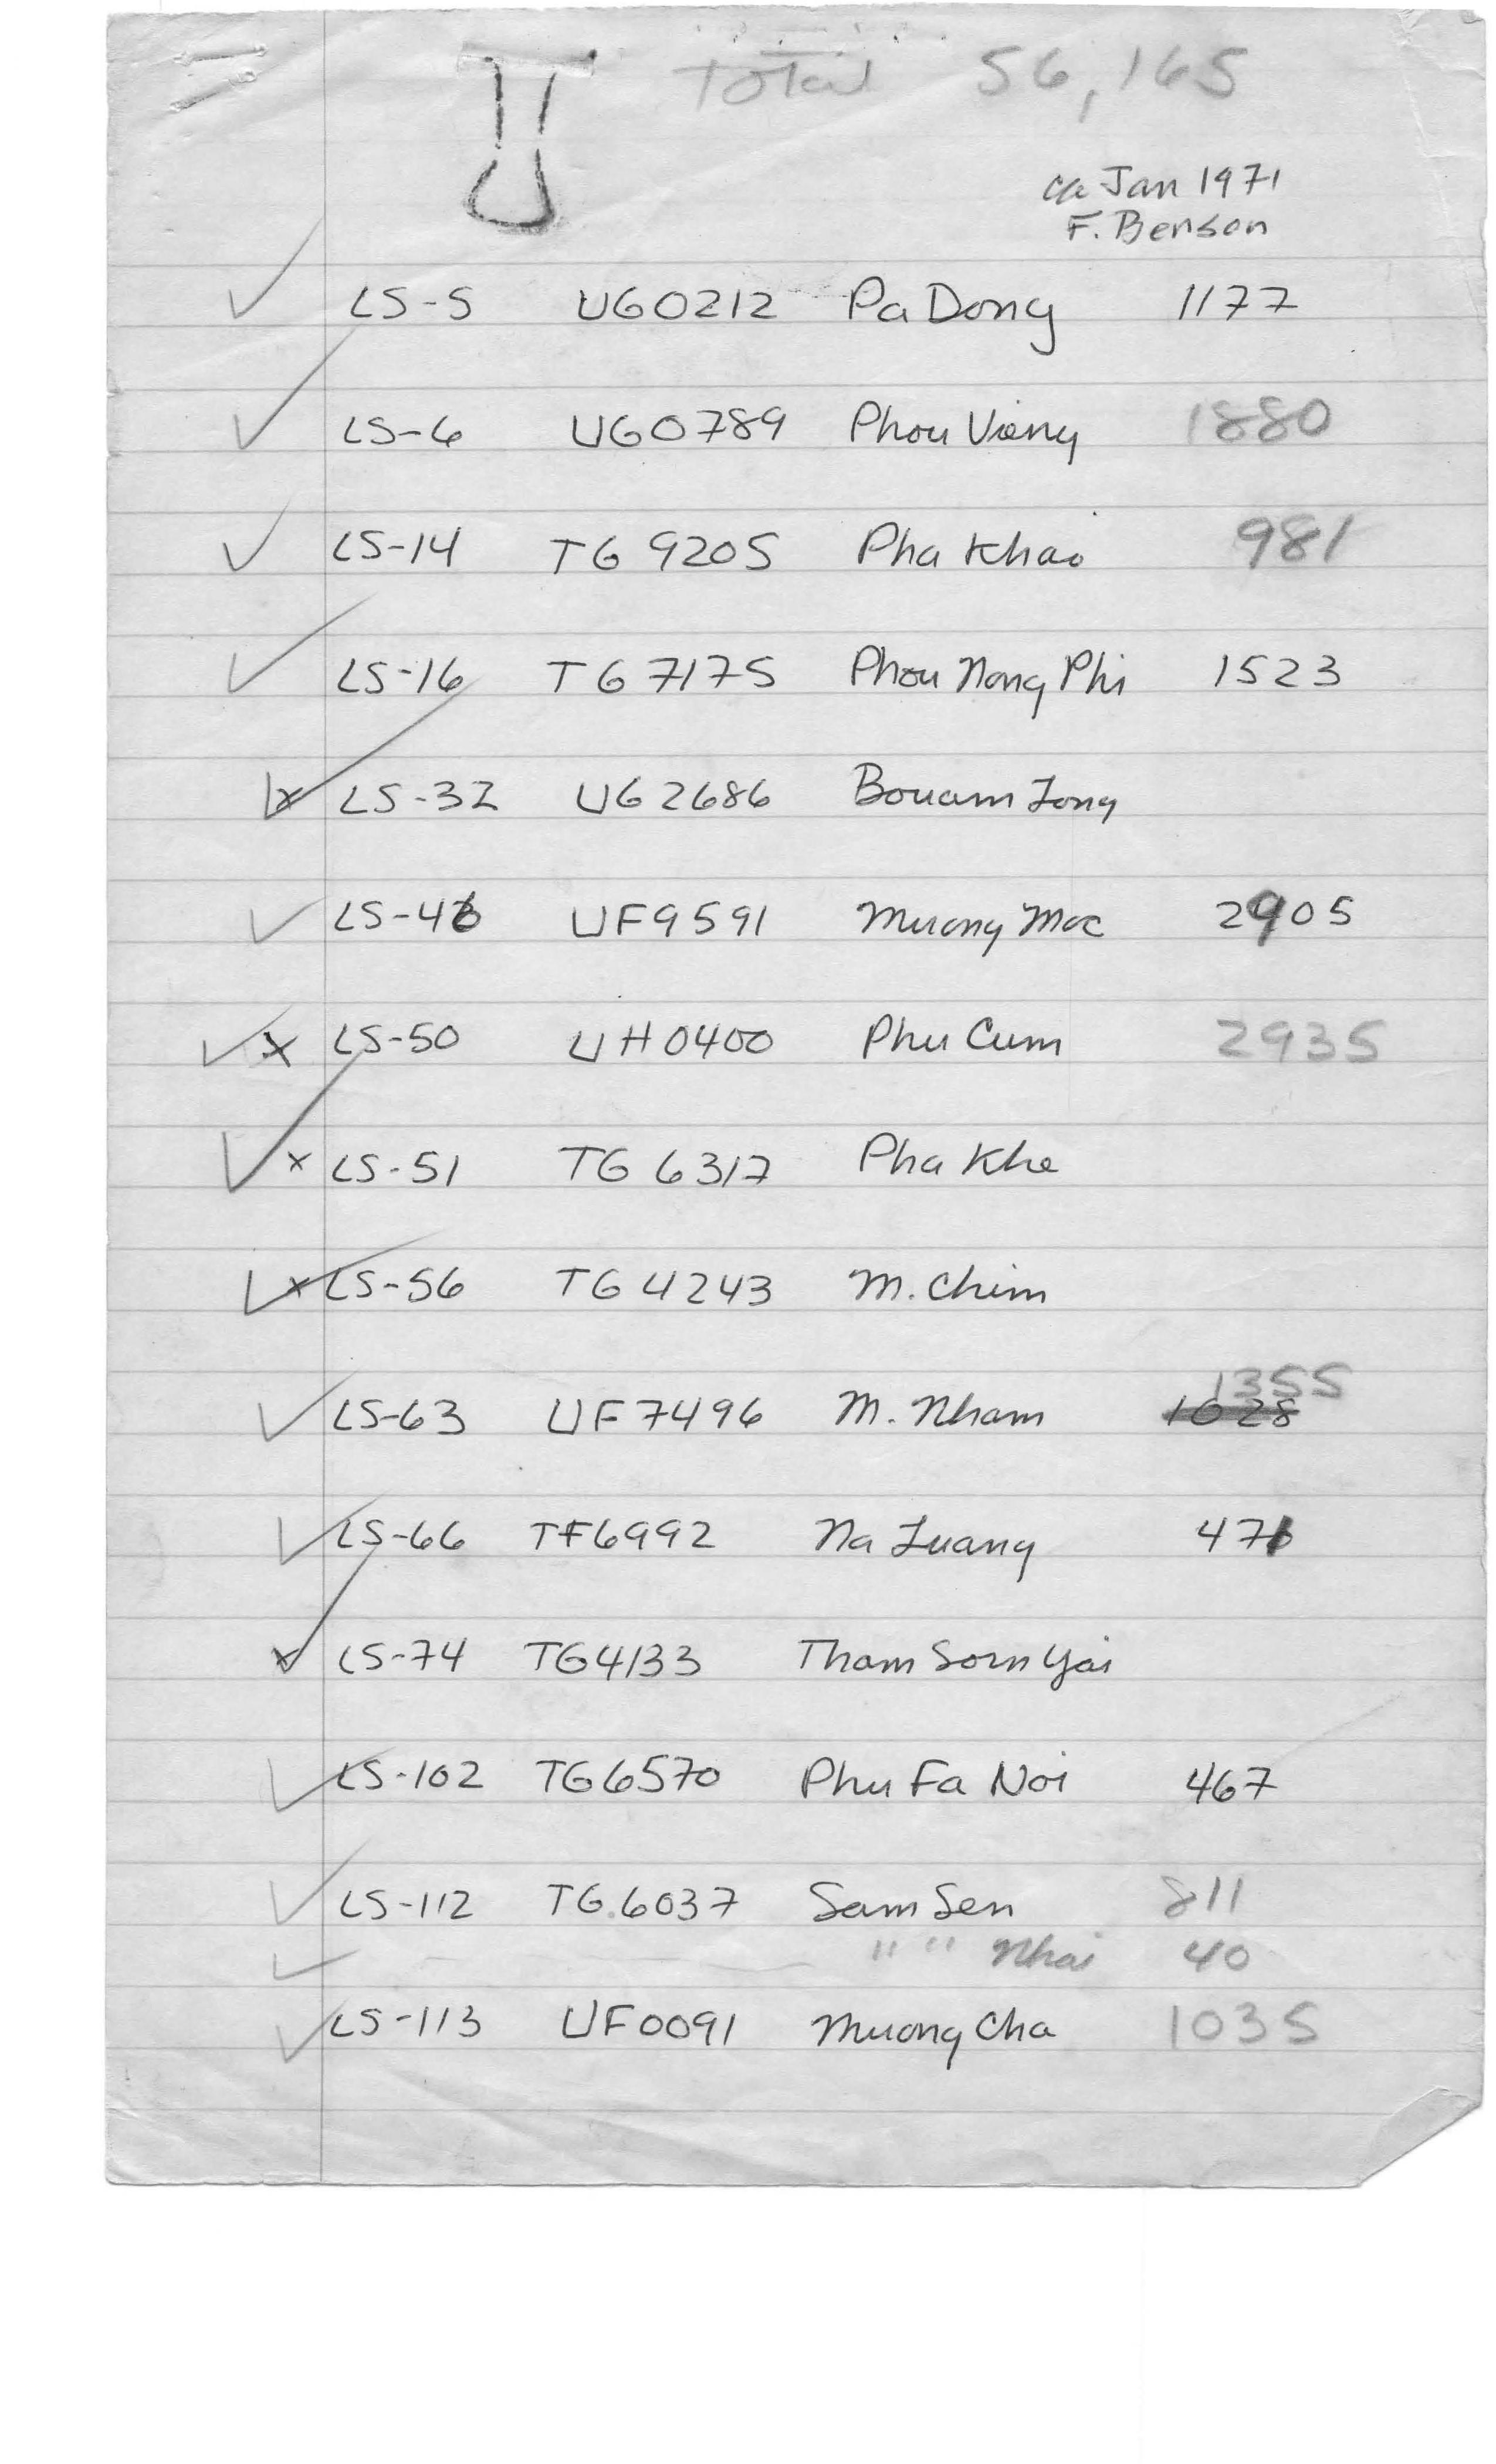 Total 56,165
ca Jan 1971
F. Benson
LS-5 UG0212 Pa Dong 1177
LS-6 UG0789 Phou Vieng 1880
LS-14 TG 9205 Pha Khao 981
LS-16 TG 7175 Phou Nong Phi 1523
LS-32 UG2686 Bouam Long
LS-46 UF9591 Muong Moc 2905
LS-50 UH0400 Phu Cum 2935
LS-51 TG 6317 Pha Khe
LS-56 TG 4243 M. Chim
1355
LS-63 UF7496 M. Nham 1028
LS-66 TF6992 Na Luang 471
LS-74 TG4133 Tham Sorn Yai
LS-102 TG6570 Phu Fa Noi 467
LS-112 TG.6037 Sam Sen 811
" " Nhai 40
LS-113 UF0091 Muong Cha 1035